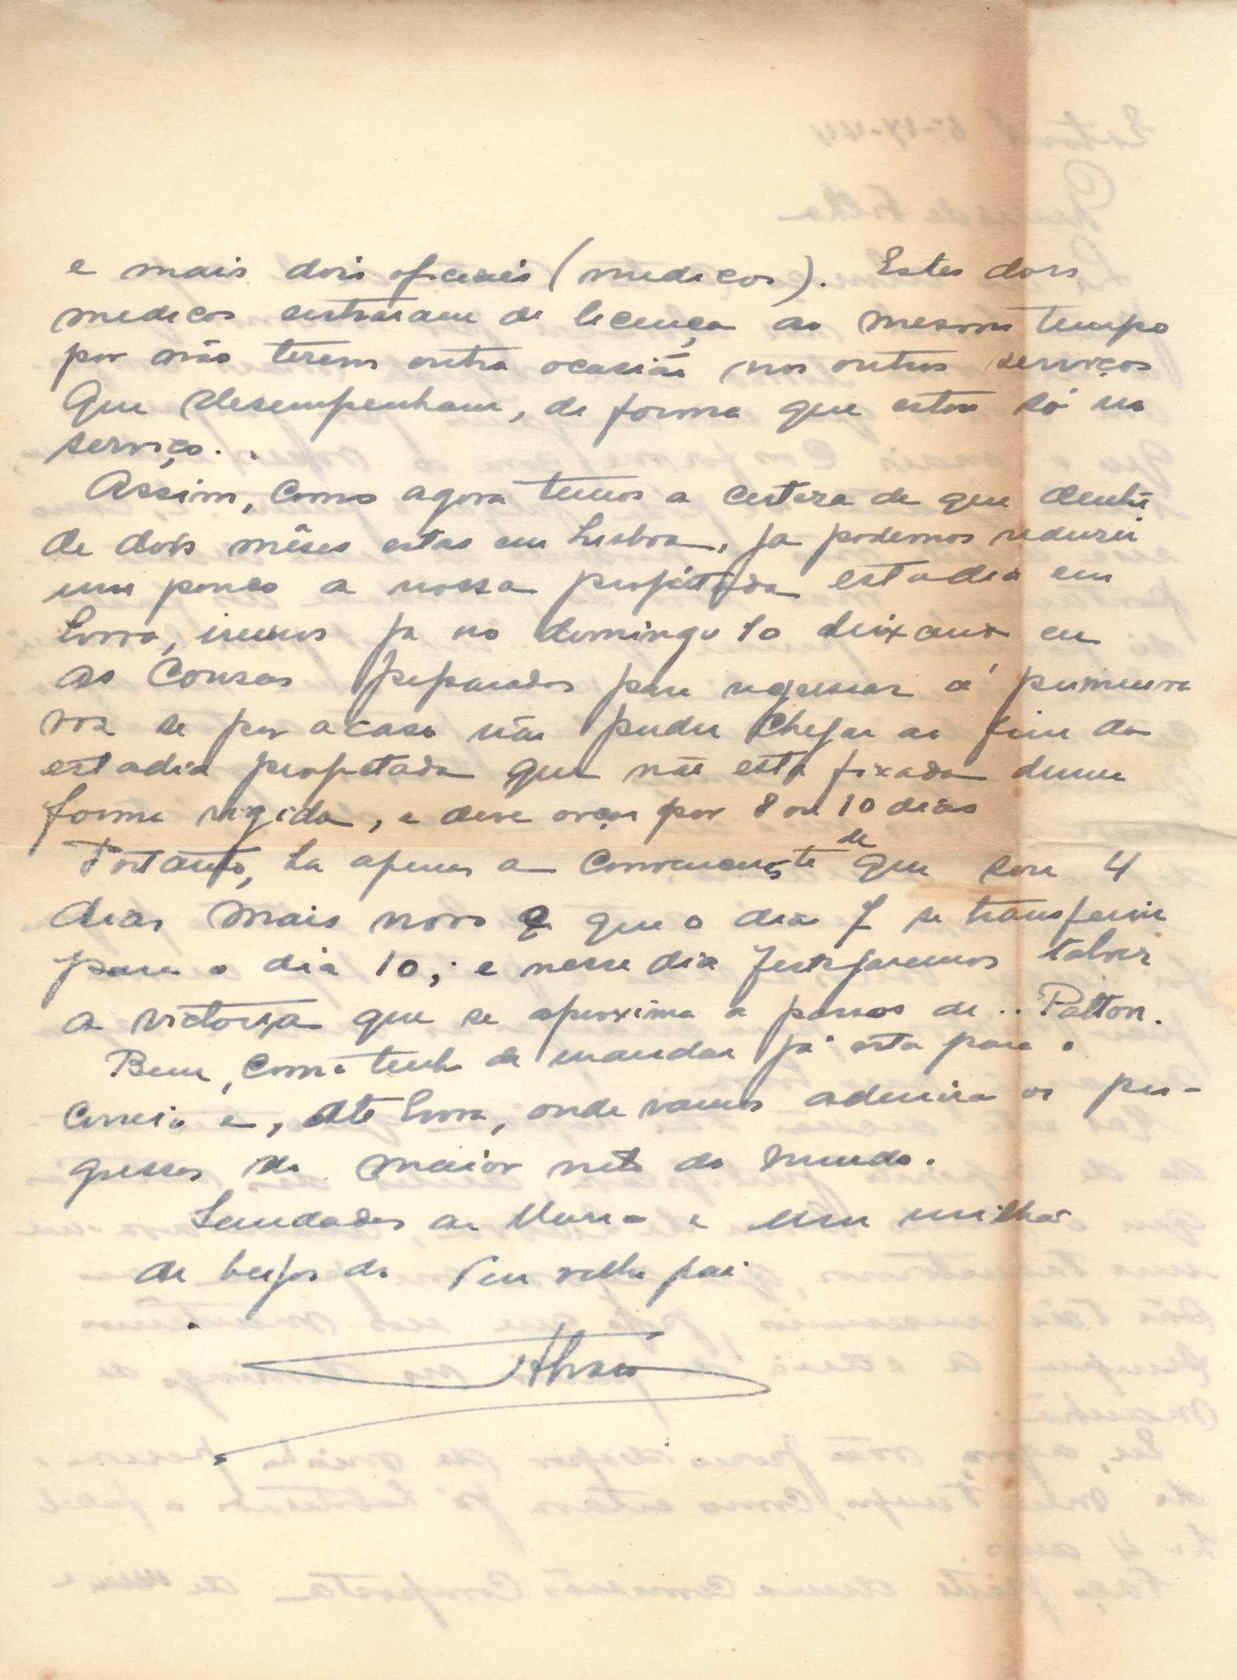 e mais dois oficiais (medicos). Estes dois
medicos entraram de licença ao mesmo tempo
por não terem outra ocasião nos outros serviços
que desempenham, de forma que estou só no
serviço.
Assim, como agora temos a certeza de que dentro
de dois mêses estas em Lisboa, ja podemos reduzir
um pouco a nossa projetada estadia em
iremos ja no domingo 10 deixando eu
as cousas preparadas para regressar á primeira
voz se por acaso não puder chegar ao fim da
estadia projetada que não está fixada duma
forma rigida, e deve orçar por 8 ou 10 dias
Portanto, apenas a de que sou 4
dias mais novo e que o dia 7 se transferiu
para o dia 10; e nesse dia festejaremos talvez
a victoria que se aproxima a passos de .. Patton.
Bem, como tenho de mandar já esta para o
correio e, até onde vamos admirar os pro-
gressos do maior neto do mundo.
Saudades ao e um milhão
de beijos do teu velho pai